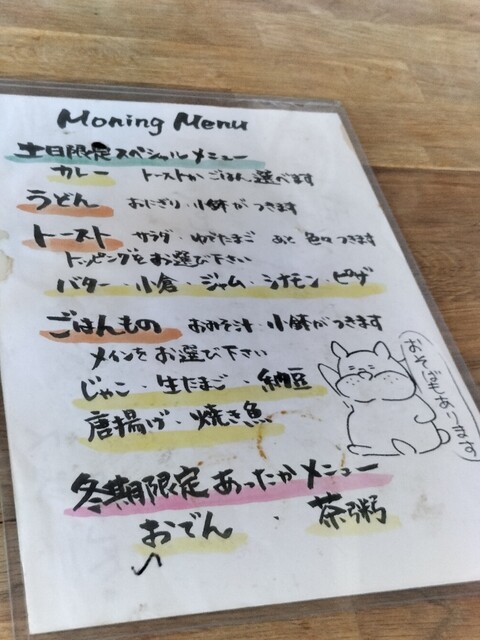 Moning Menu
土日限定スペシャルメニュー
カレー トーストかごはん選べます
うどん おにぎり・小鉢がつきます
トースト サラダ・ゆがたまご あと色々つきます
トッピングをお選び下さい
バター・小倉・ジャム・シナモン・ピザ
ごはんもの おみそ汁 小鉢がつきます
メインをお選び下さい
じゃこ・生たまご・納豆
唐揚げ・焼き魚
おそば屋もあります
冬期限定あったかメニュー
おでん・茶粥